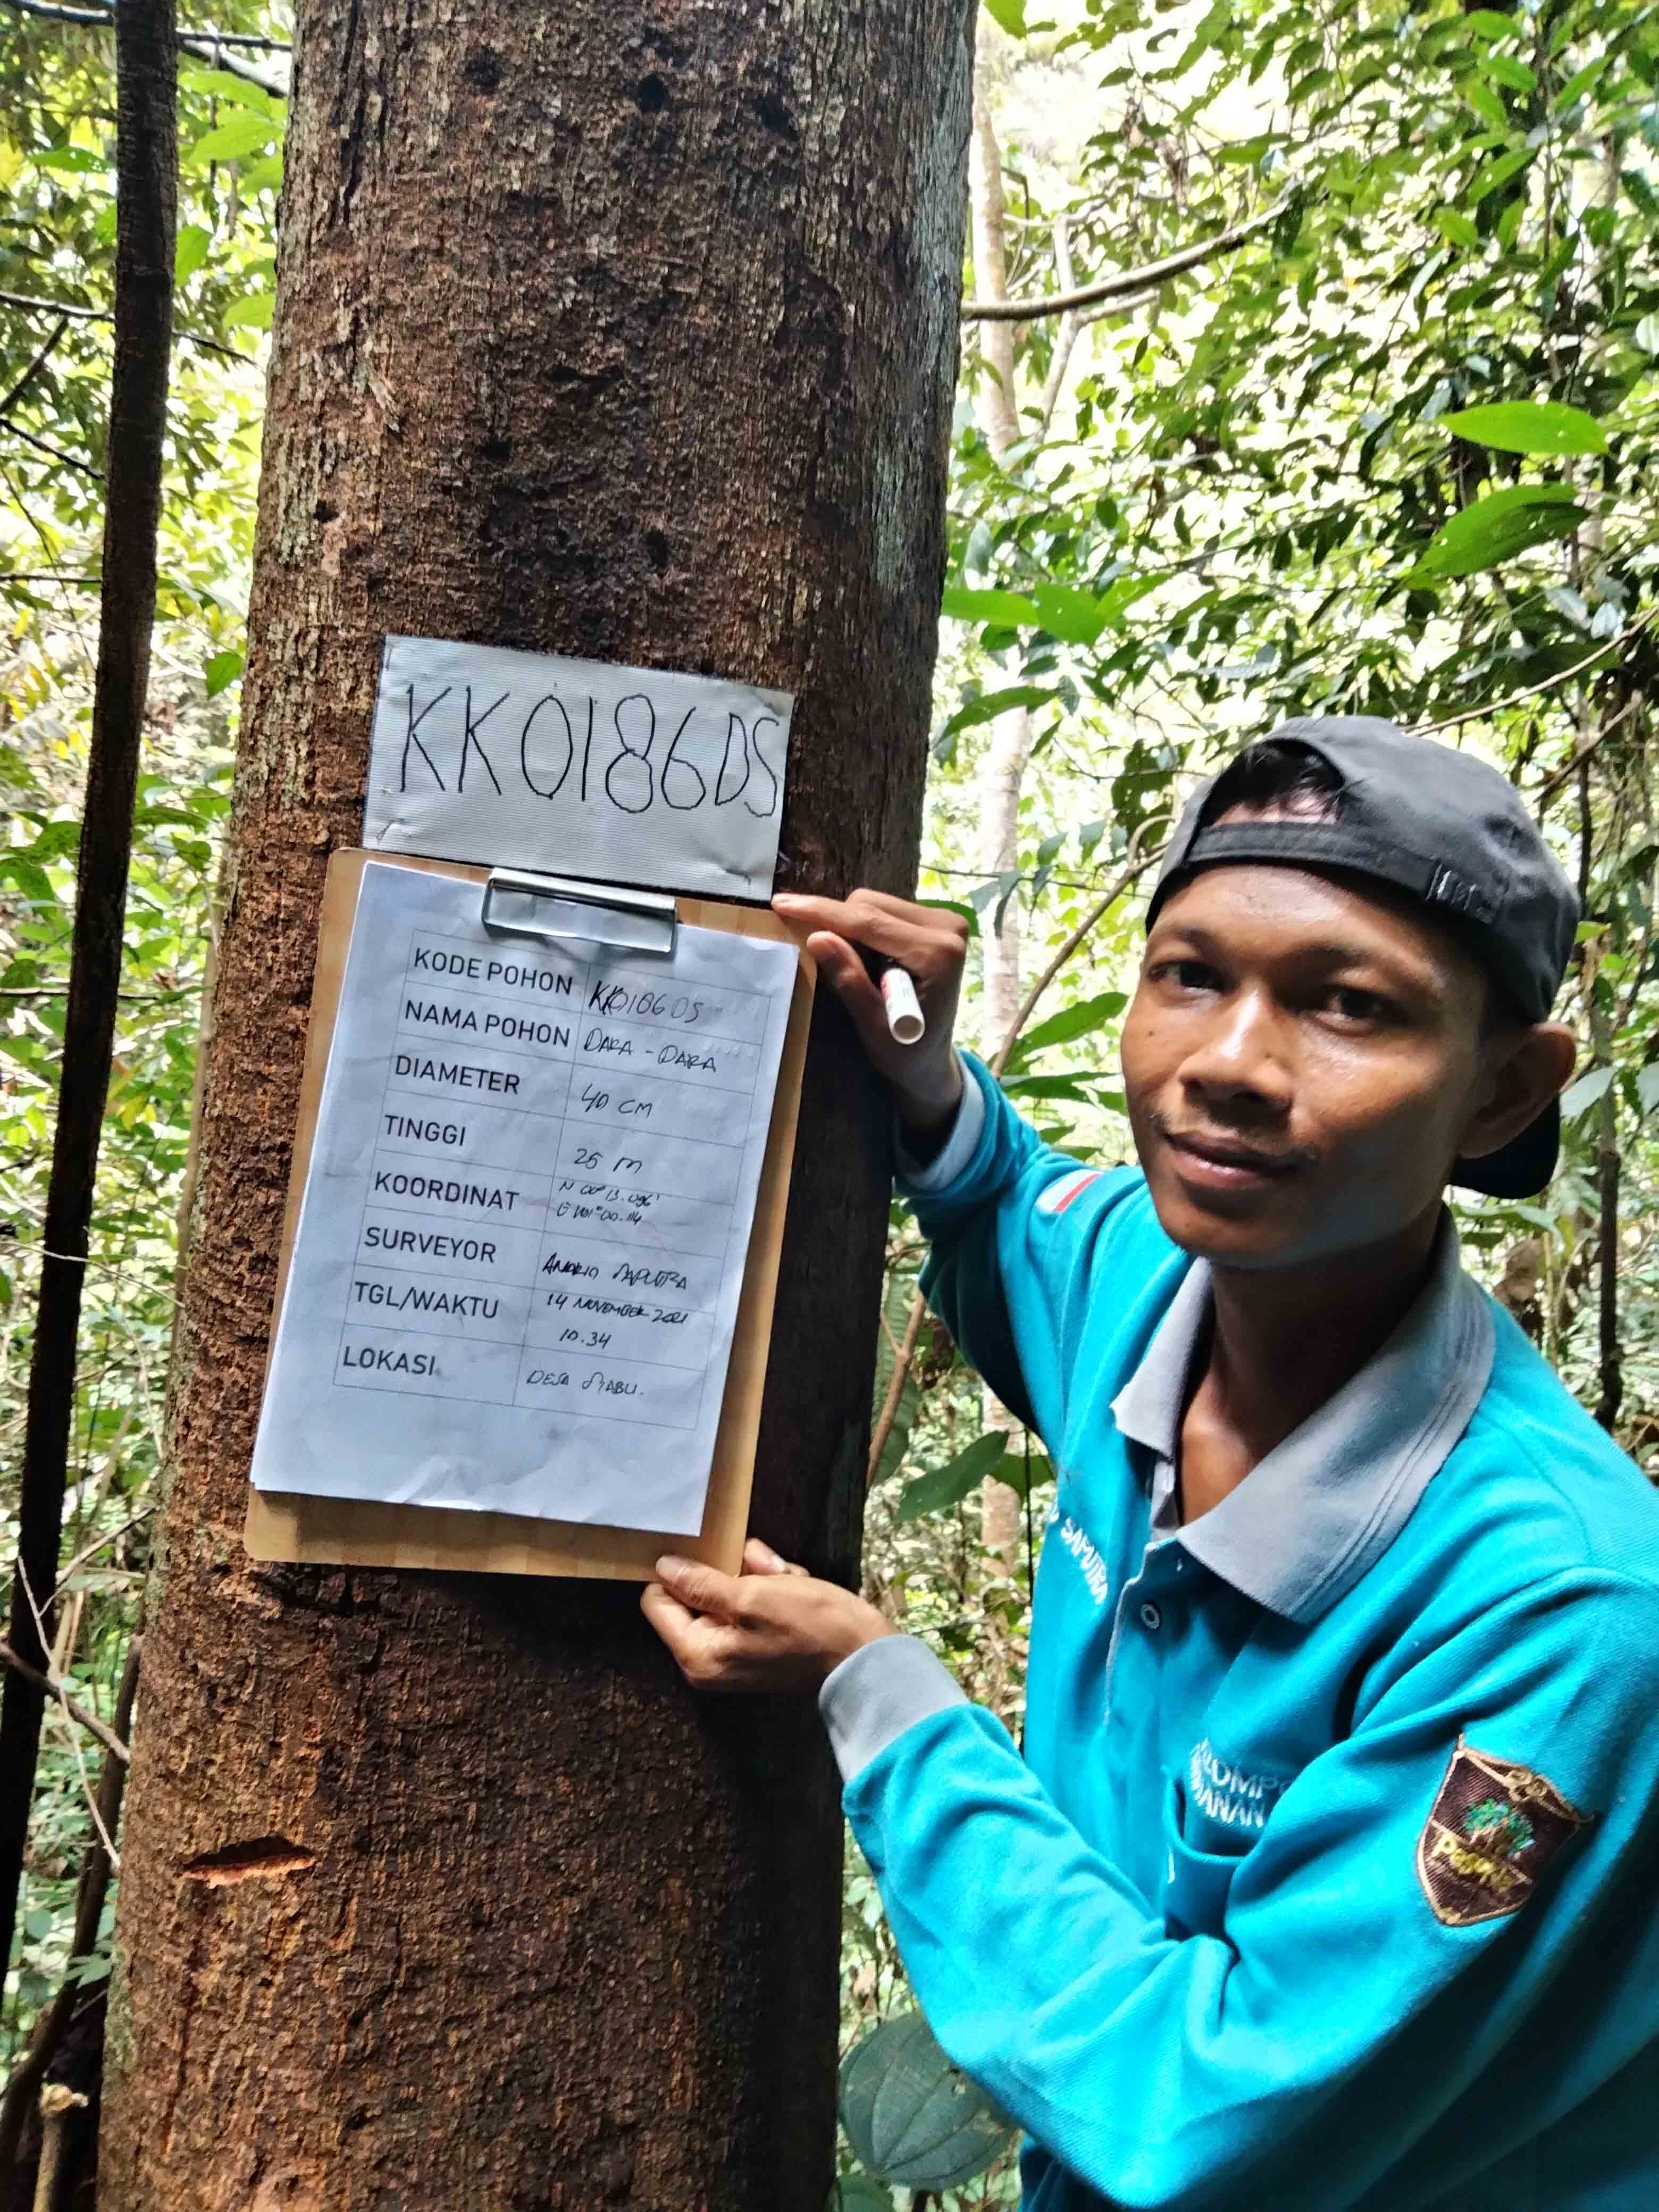 KK0186DS
KODE POHON KK0186DS
NAMA POHON DARA - DARA
DIAMETER 40 CM
TINGGI 25 M
KOORDINAT N 00° 13.096'
E 101° 00.114
SURVEYOR SAPUTRA
TGL/WAKTU 14 NOVEMBER 2021
10.34
LOKASI DESA SIABU.
SAPUTRA